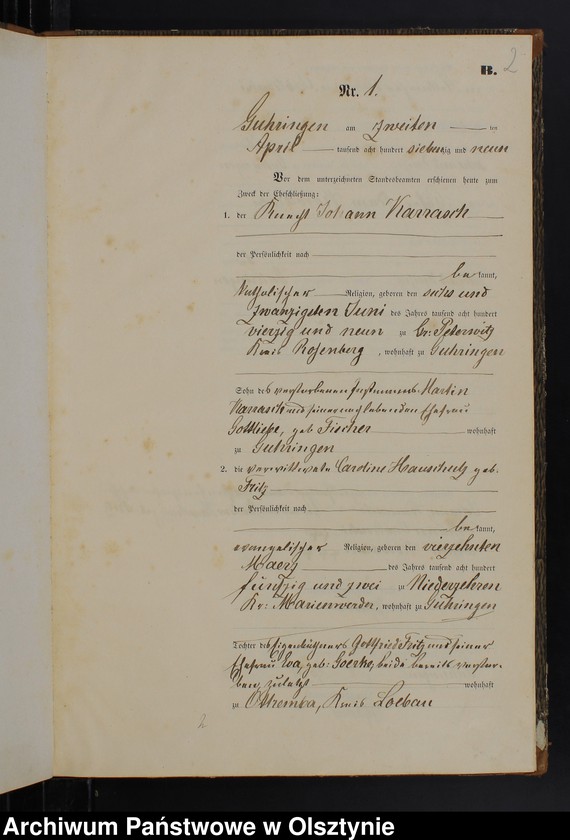 B. 2
Nr. 1.
Guhringen am zweiten ten
April tausend acht hundert siebenzig und neun
Vor dem unterzeichneten Standesbeamten erschienen heute zum
Zweck der Eheschließung:
1. der Knecht Johann Karrasch
der Persönlichkeit nach
be kannt,
katholischer Religion, geboren den sechs und
zwanzigsten Juni des Jahres tausend acht hundert
vierzig und neun zu Gr: Peterwitz
Kreis Rosenberg, wohnhaft zu Guhringen
Sohn des verstorbenen Instmanns Martin
Karrasch und seiner nachlebenden Ehefrau
Gottliebe, geb. Fischer wohnhaft
zu Guhringen
2. die verwittwete Caroline Hauschulz geb.
Fritz
der Persönlichkeit nach
be kannt,
evangelischer Religion, geboren den vierzehnten
Maerz des Jahres tausend acht hundert
fünfzig und zwei zu Niederzehren
Kr: Marienwerder, wohnhaft zu Guhringen
Tochter des Eigenkäthners Gottfried Fritz und seiner
Ehefrau Eva, geb: beide bereits verstor-
ben, zuletzt wohnhaft
zu Ostremba, Kreis Loebau
2
Archiwum Państwowe w Olsztynie